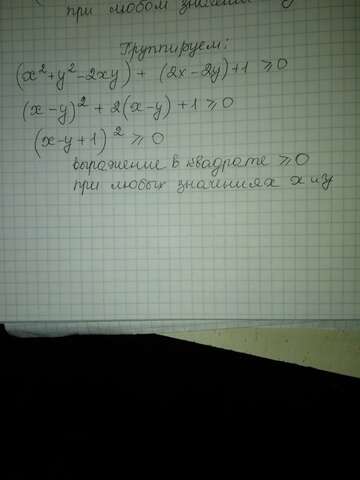 при любом значении
Группируем:
(x²+y²-2xy) + (2x-2y)+1 ≥0
(x-y)² + 2(x-y) +1 ≥0
(x-y+1)² ≥0
выражение в квадрате ≥0
при любых значениях x и y